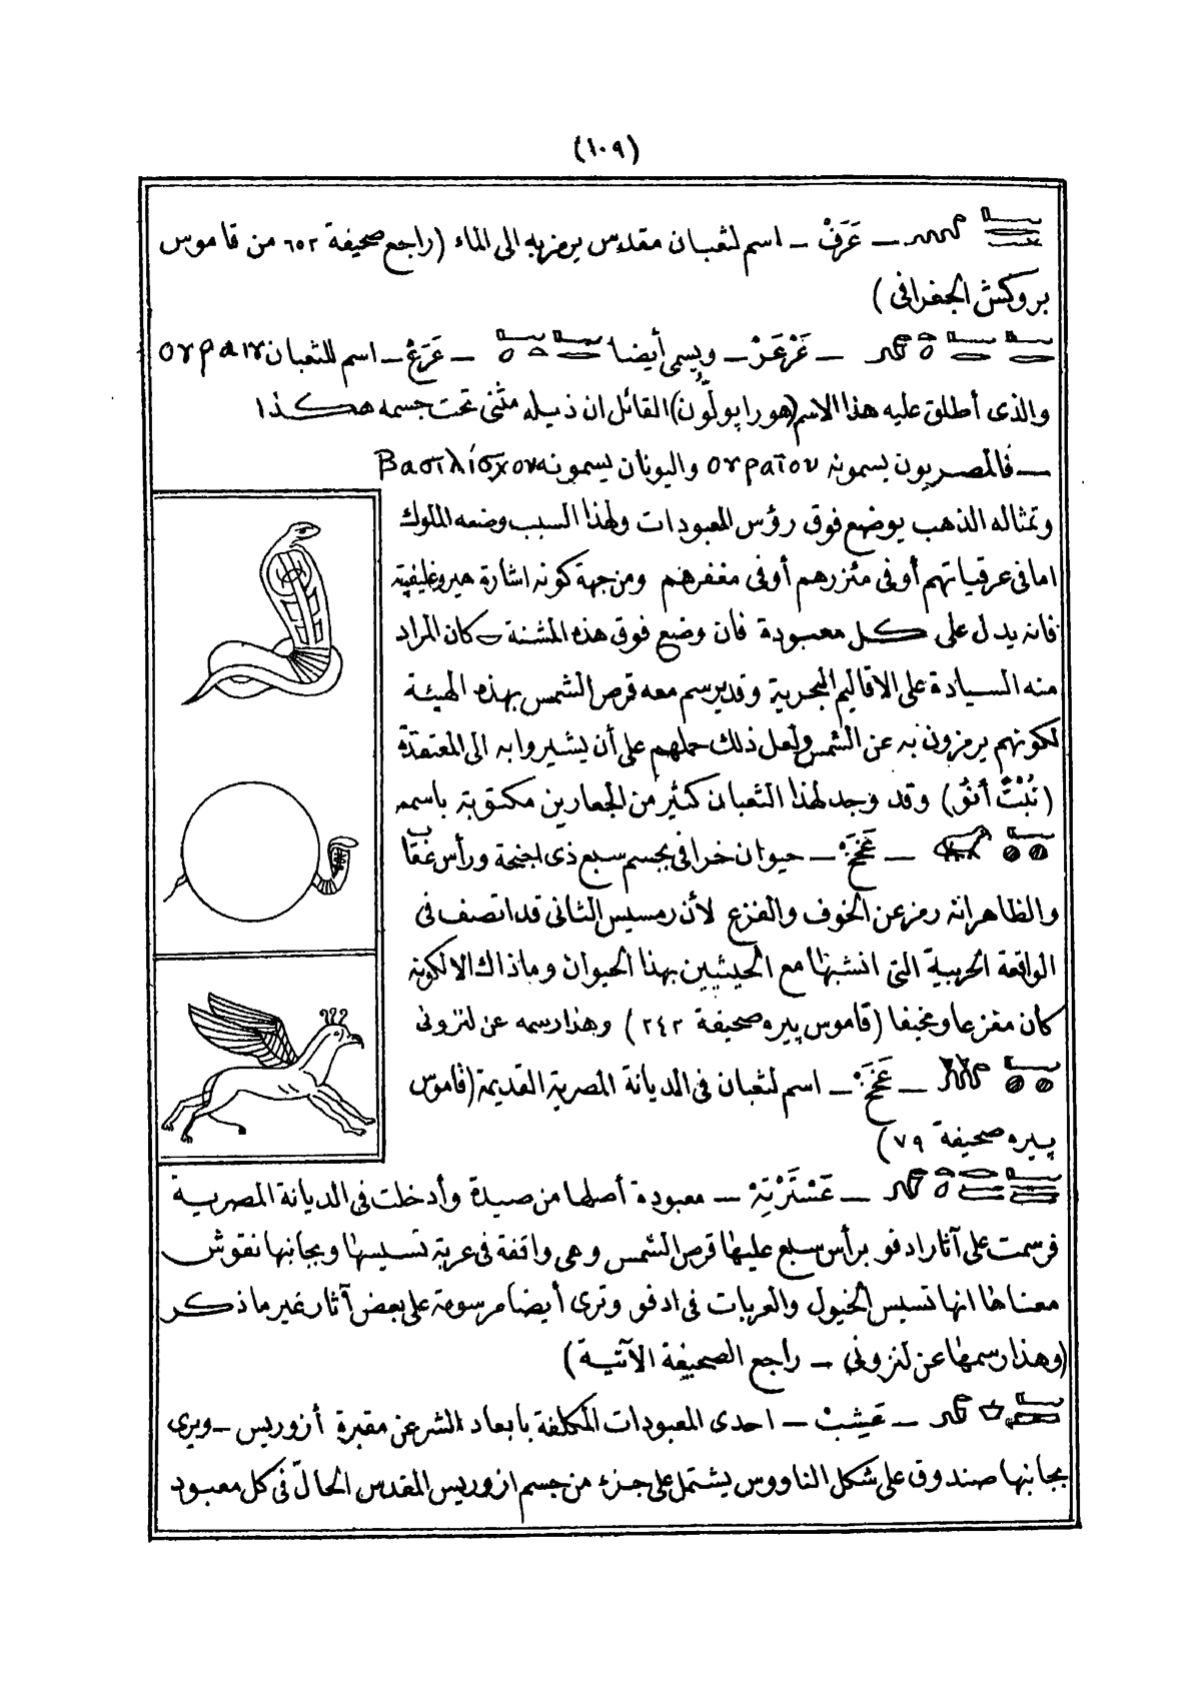 (١٠٩)
— عَرَفْ — اسم لثعبان مقدس يرمز به الى الماء (راجع صحيفة ٦٥٢ من قاموس
بروكش الجغرافى)
— عَرْعَرْ — ويسمى أيضا — عَرَعْ — اسم للثعبان
والذى أطلق عليه هذا الاسم (هورابولّون) القائل ان ذيله مثنى تحت جسمه هكذا
— فالمصريون يسمونه ουραῖον واليونان يسمونه Βασιλίσχον
وتمثاله الذهب يوضع فوق رؤس المعبودات ولهذا السبب وضعه الملوك
اما فى عرقياتهم أو فى مئزرهم أو فى مغفرهم ومن جهة كونه اشارة هيروغليفية
فانه يدل على كل معبودة فان وضع فوق هذه المشنة كان المراد
منه السيادة على الاقاليم البحرية وقد يرسم معه قرص الشمس بهذه الهيئة
لكونهم يرمزون به عن الشمس ولعل ذلك حملهم على أن يشيروا به الى المعتقدة
وقد وجد لهذا الثعبان كثير من الجعارين مكتوبة باسمه
— عَخَخْ — حيوان خرافى بجسم سبع ذى اجنحة ورأس عقاب
والظاهر انه رمز عن الخوف والفزع لأن رمسيس الثانى قد اتصف فى
الواقعة الحربية التى انشبها مع الحيثيين بهذا الحيوان وما ذاك الا لكونه
كان مفزعا ومخيفا (قاموس پيره صحيفة ٢٤٢) وهذا رسمه عن لنزونى
— عَخَخْ — اسم لثعبان فى الديانة المصرية القديمة (قاموس
پيره صحيفة ٧٩)
— عَسْتَرْتِهْ — معبودة أصلها من صيدة وأدخلت فى الديانة المصرية
فرسمت على آثار ادفو برأس سبع عليها قرص الشمس وهى واقفة فى عربة تسيسها وبجانبها نقوش
معناها انها تسيس الخيول والعربات فى ادفو وترى أيضا مرسومة على بعض آثار غير ما ذكر
(وهذا رسمها عن لنزونى — راجع الصحيفة الآتية)
— عَشِبْ — احدى المعبودات المكلفة بابعاد الشر عن مقبرة أزوريس — ويرى
بجانبها صندوق على شكل الناووس يشتمل على جزء من جسم ازوريس المقدس الحالّ فى كل معبود